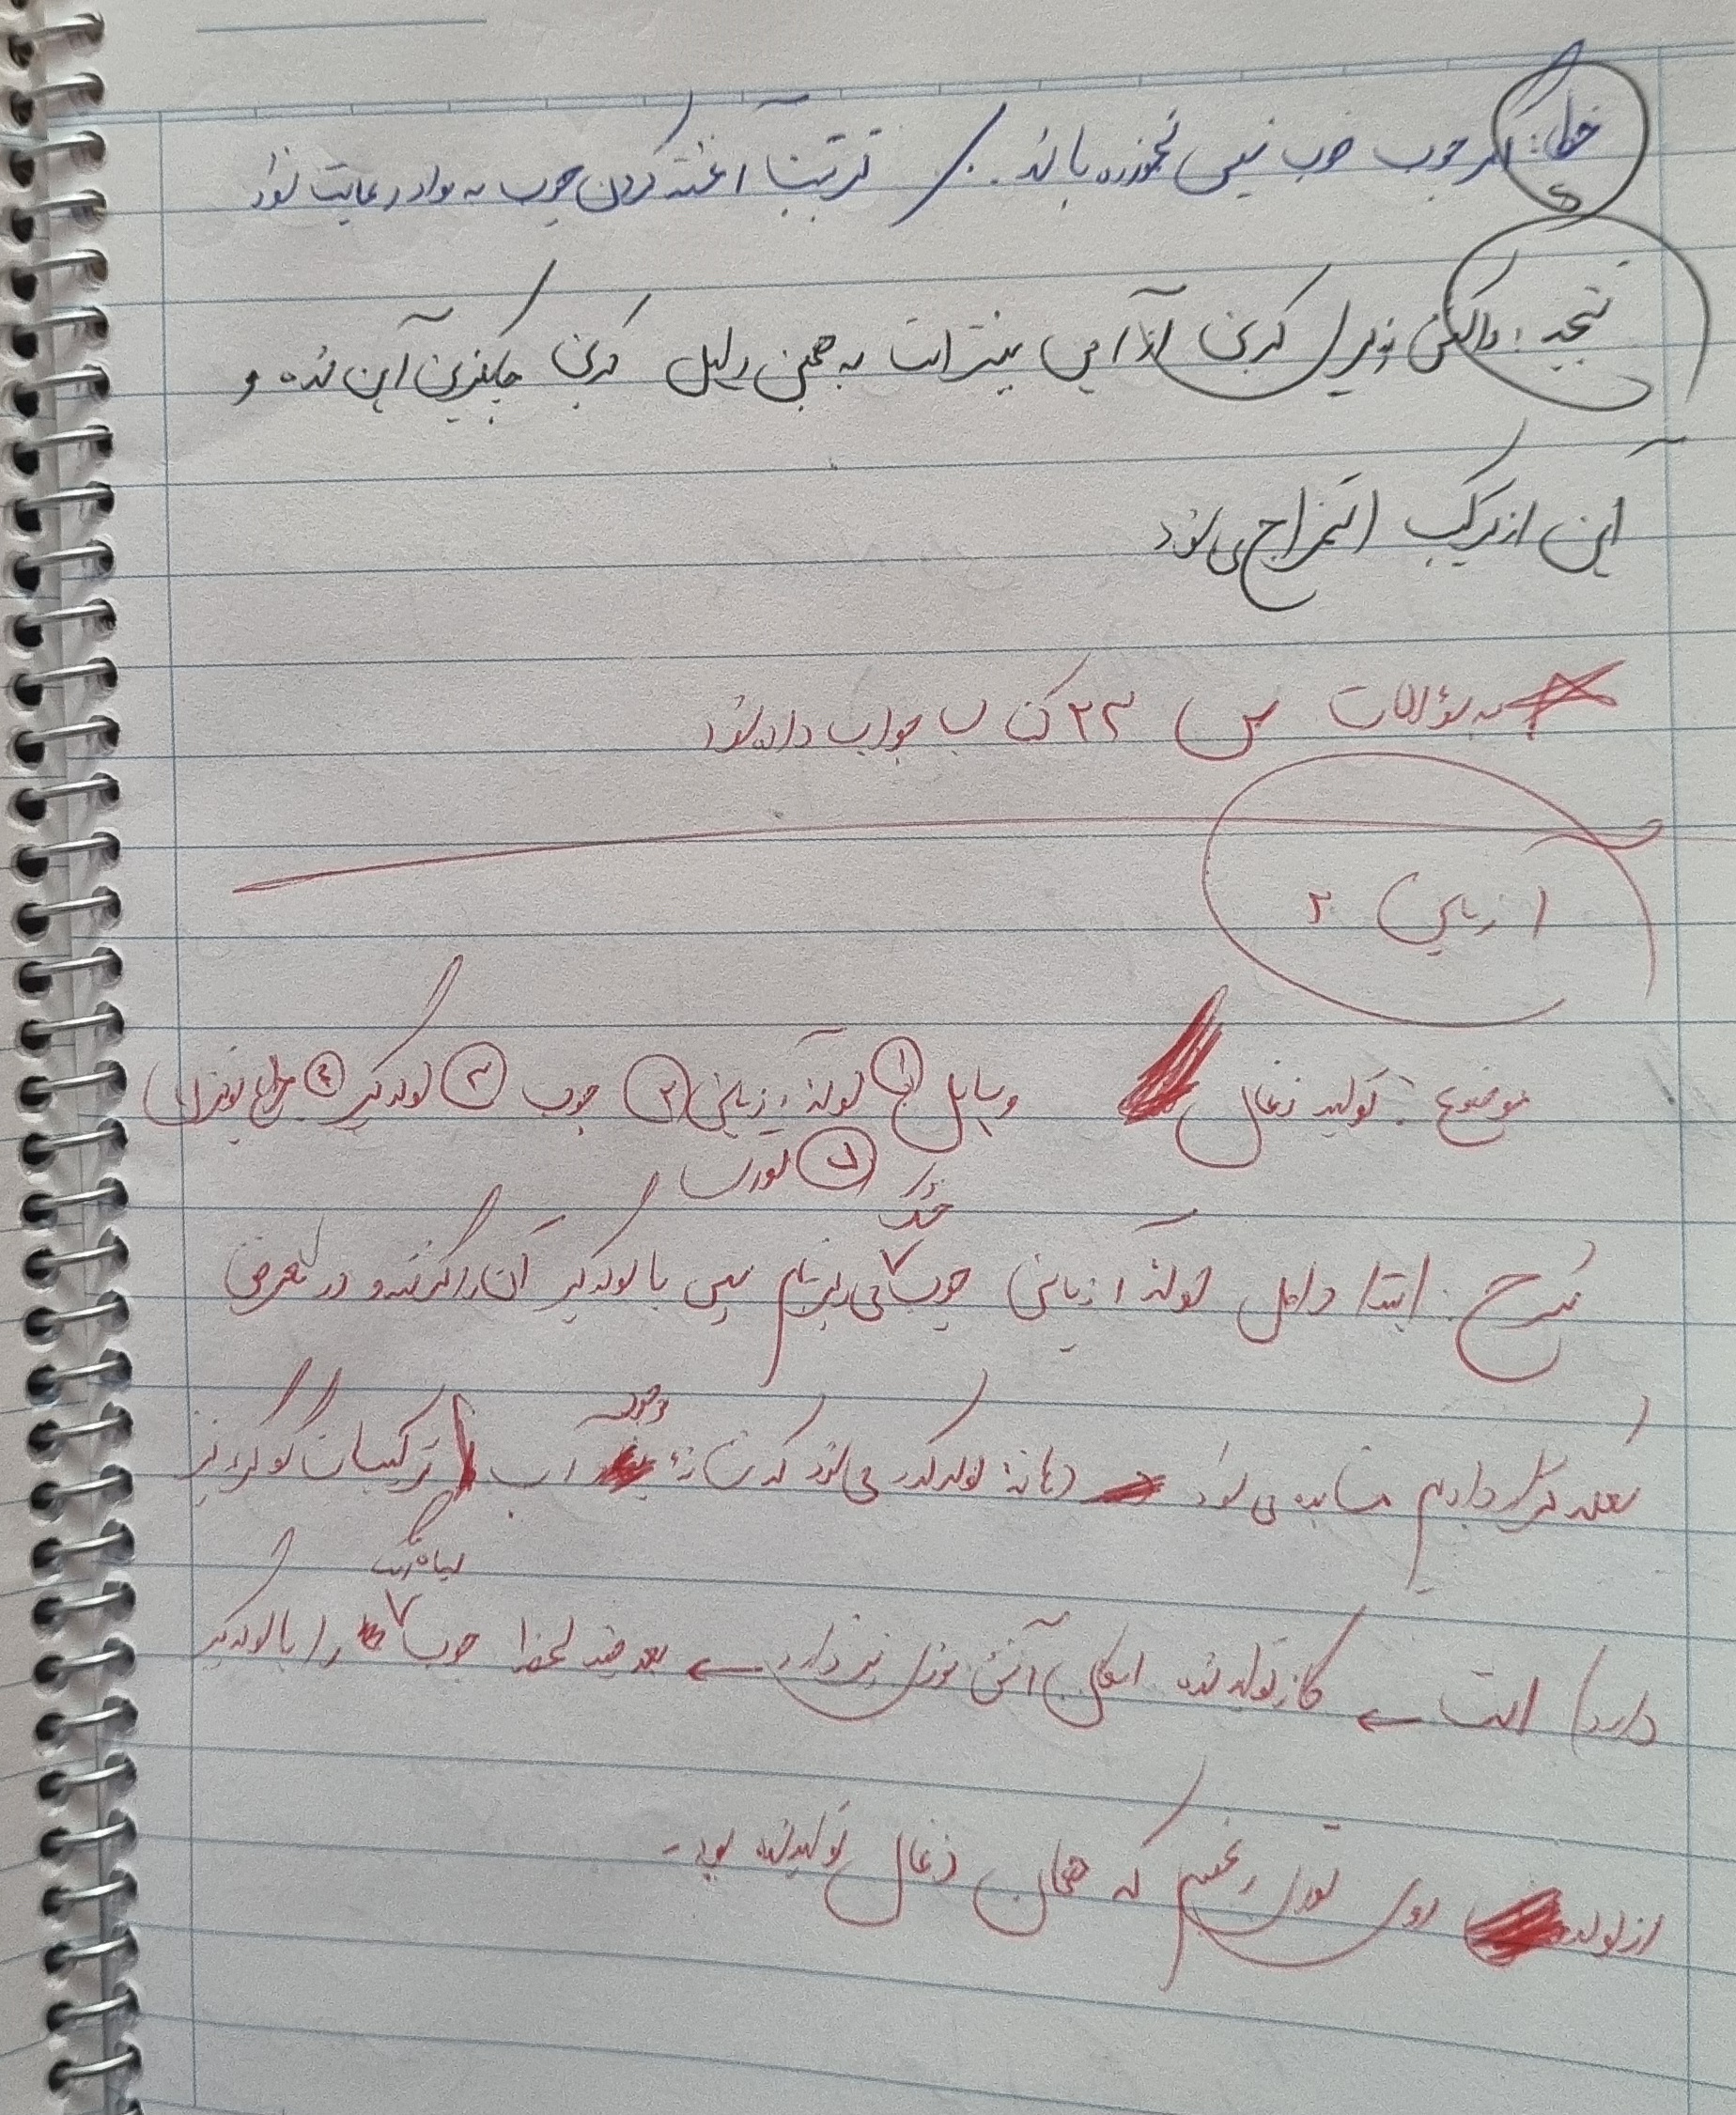 خطا: اگر چوب خوب خیس نخورده باشد. / ترتیب آغشته کردن چوب به مواد رعایت نشود
نتیجه: واکنش پذیری کربن از آهن بیشتر است به همین دلیل کربن جایگزین آهن شده و
آهن از ترکیب استخراج می‌شود
به سؤالات ص ۲۳ کتاب جواب داده شود
آزمایش ۲
موضوع: تولید زغال وسایل ① لوله آزمایش ② چوب ③ لوله گیر ④ چراغ بونزن
⑤ توری
شرح: ابتدا داخل لوله آزمایش چوب خشک می‌ریزیم سپس با لوله گیر آن را گرفته و در معرض
شعله قرار دادیم مشاهده می‌شود دهانه لوله کدر می‌شود که نشانهٔ وجود آب (ترکیبات گوگرد نیز
دارد) است ← گاز تولید شده امکان آتش سوزی نیز دارد ← بعد چند لحظه چوب سیاه است را با لوله گیر
از لوله روی توری ریختیم که همان زغال تولید شده بود.